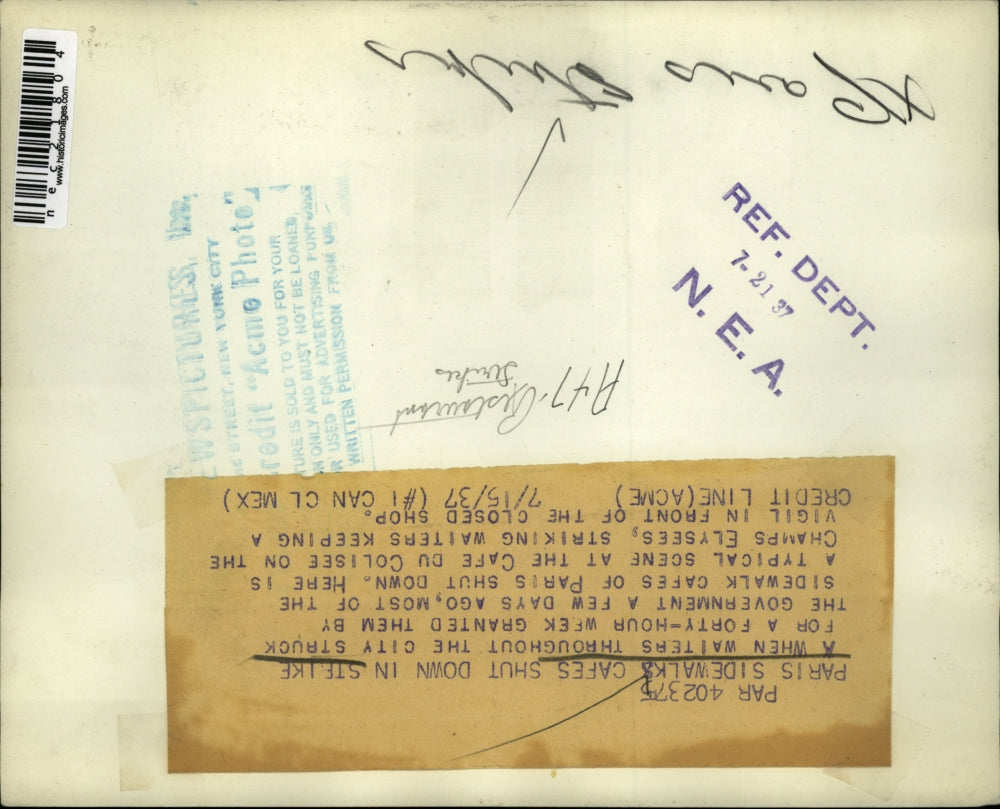 X Paris Strikes
nec21804
www.historicimages.com
EWSPICTURES, Inc.
STREET, NEW YORK CITY
redit "Acme Photo"
TURE IS SOLD TO YOU FOR YOUR
N ONLY AND MUST NOT BE LOANED,
R USED FOR ADVERTISING PURPOSES
WRITTEN PERMISSION FROM US
REF. DEPT.
7-21 37
N. E. A.
A47-Restaurant
Strikes
PAR 402375
PARIS SIDEWALKS CAFES SHUT DOWN IN STRIKE
WHEN WAITERS THROUGHOUT THE CITY STRUCK
FOR A FORTY-HOUR WEEK GRANTED THEM BY
THE GOVERNMENT A FEW DAYS AGO, MOST OF THE
SIDEWALK CAFES OF PARIS SHUT DOWN. HERE IS
A TYPICAL SCENE AT THE CAFE DU COLISEE ON THE
CHAMPS ELYSEES, STRIKING WAITERS KEEPING A
VIGIL IN FRONT OF THE CLOSED SHOP.
CREDIT LINE(ACME) 7/15/37 (#1 CAN CL MEX)